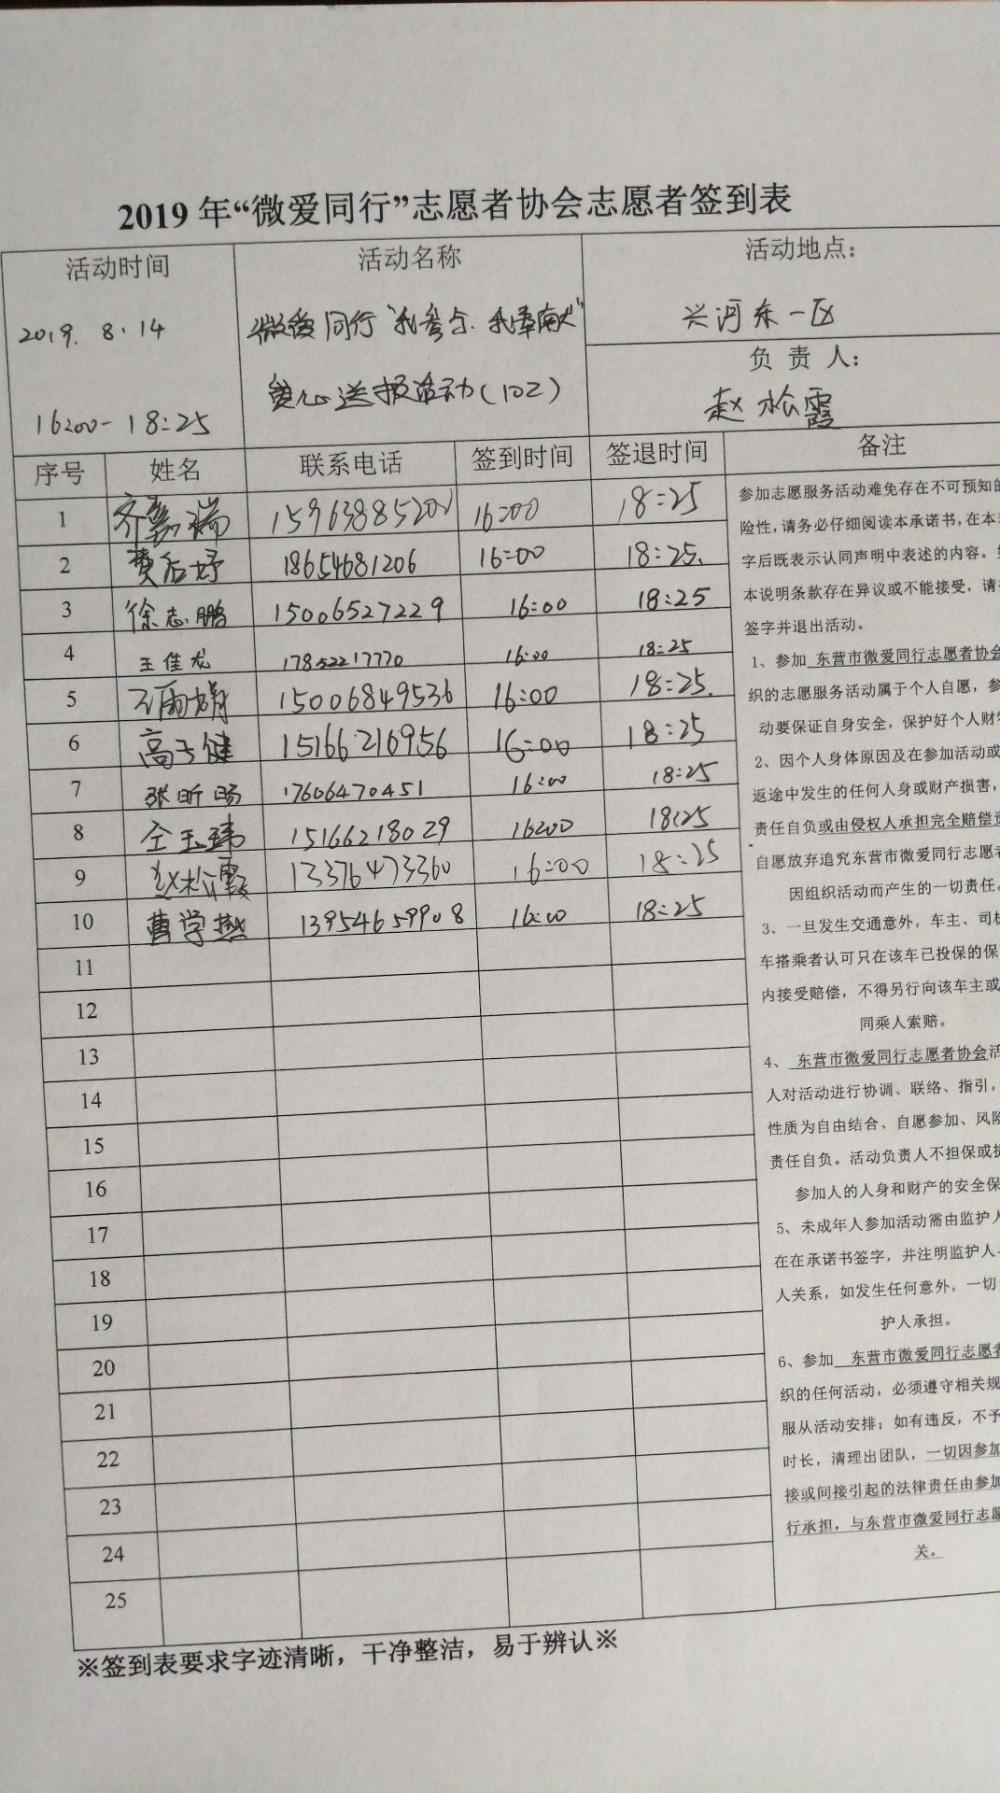 2019年“微爱同行”志愿者协会志愿者签到表
活动时间
2019. 8.14
16:00-18:25
活动名称
微爱同行“我参与.我奉献”
爱心送报活动(102)
活动地点：
兴河东一区
负 责 人：
赵松霞
序号 姓名 联系电话 签到时间 签退时间 备注
1 齐嘉瑞 15963885201 16:00 18:25
2 费后妤 18654681206 16:00 18:25.
3 徐志鹏 15006527229 16:00 18:25
4 王佳龙 17852217770 16:00 18:25
5 15006849536 16:00 18:25.
6 高子健 15166216956 16:00 18:25
7 张昕旸 17606470451 16:00 18:25
8 仝玉玮 15166218029 16:00 18:25
9 赵松霞 13376473360 16:00 18:25
10 曹学燕 13954659908 16:00 18:25
11
12
13
14
15
16
17
18
19
20
21
22
23
24
25
参加志愿服务活动难免存在不可预知的
险性，请务必仔细阅读本承诺书，在本
字后既表示认同声明中表述的内容。
本说明条款存在异议或不能接受，请
签字并退出活动。
1、参加 东营市微爱同行志愿者协会
织的志愿服务活动属于个人自愿，参
动要保证自身安全，保护好个人财
2、因个人身体原因及在参加活动或
返途中发生的任何人身或财产损害，
责任自负或由侵权人承担完全赔偿责
自愿放弃追究东营市微爱同行志愿者
因组织活动而产生的一切责任。
3、一旦发生交通意外，车主、司机
车搭乘者认可只在该车已投保的保
内接受赔偿，不得另行向该车主或
同乘人索赔。
4、 东营市微爱同行志愿者协会活
人对活动进行协调、联络、指引，
性质为自由结合、自愿参加、风险
责任自负。活动负责人不担保或
参加人的人身和财产的安全保
5、未成年人参加活动需由监护人
在在承诺书签字，并注明监护人
人关系，如发生任何意外，一切
护人承担。
6、参加 东营市微爱同行志愿者
织的任何活动，必须遵守相关规
服从活动安排；如有违反，不予
时长，清理出团队，一切因参加
接或间接引起的法律责任由参加
行承担，与东营市微爱同行志愿
关。
※签到表要求字迹清晰，干净整洁，易于辨认※